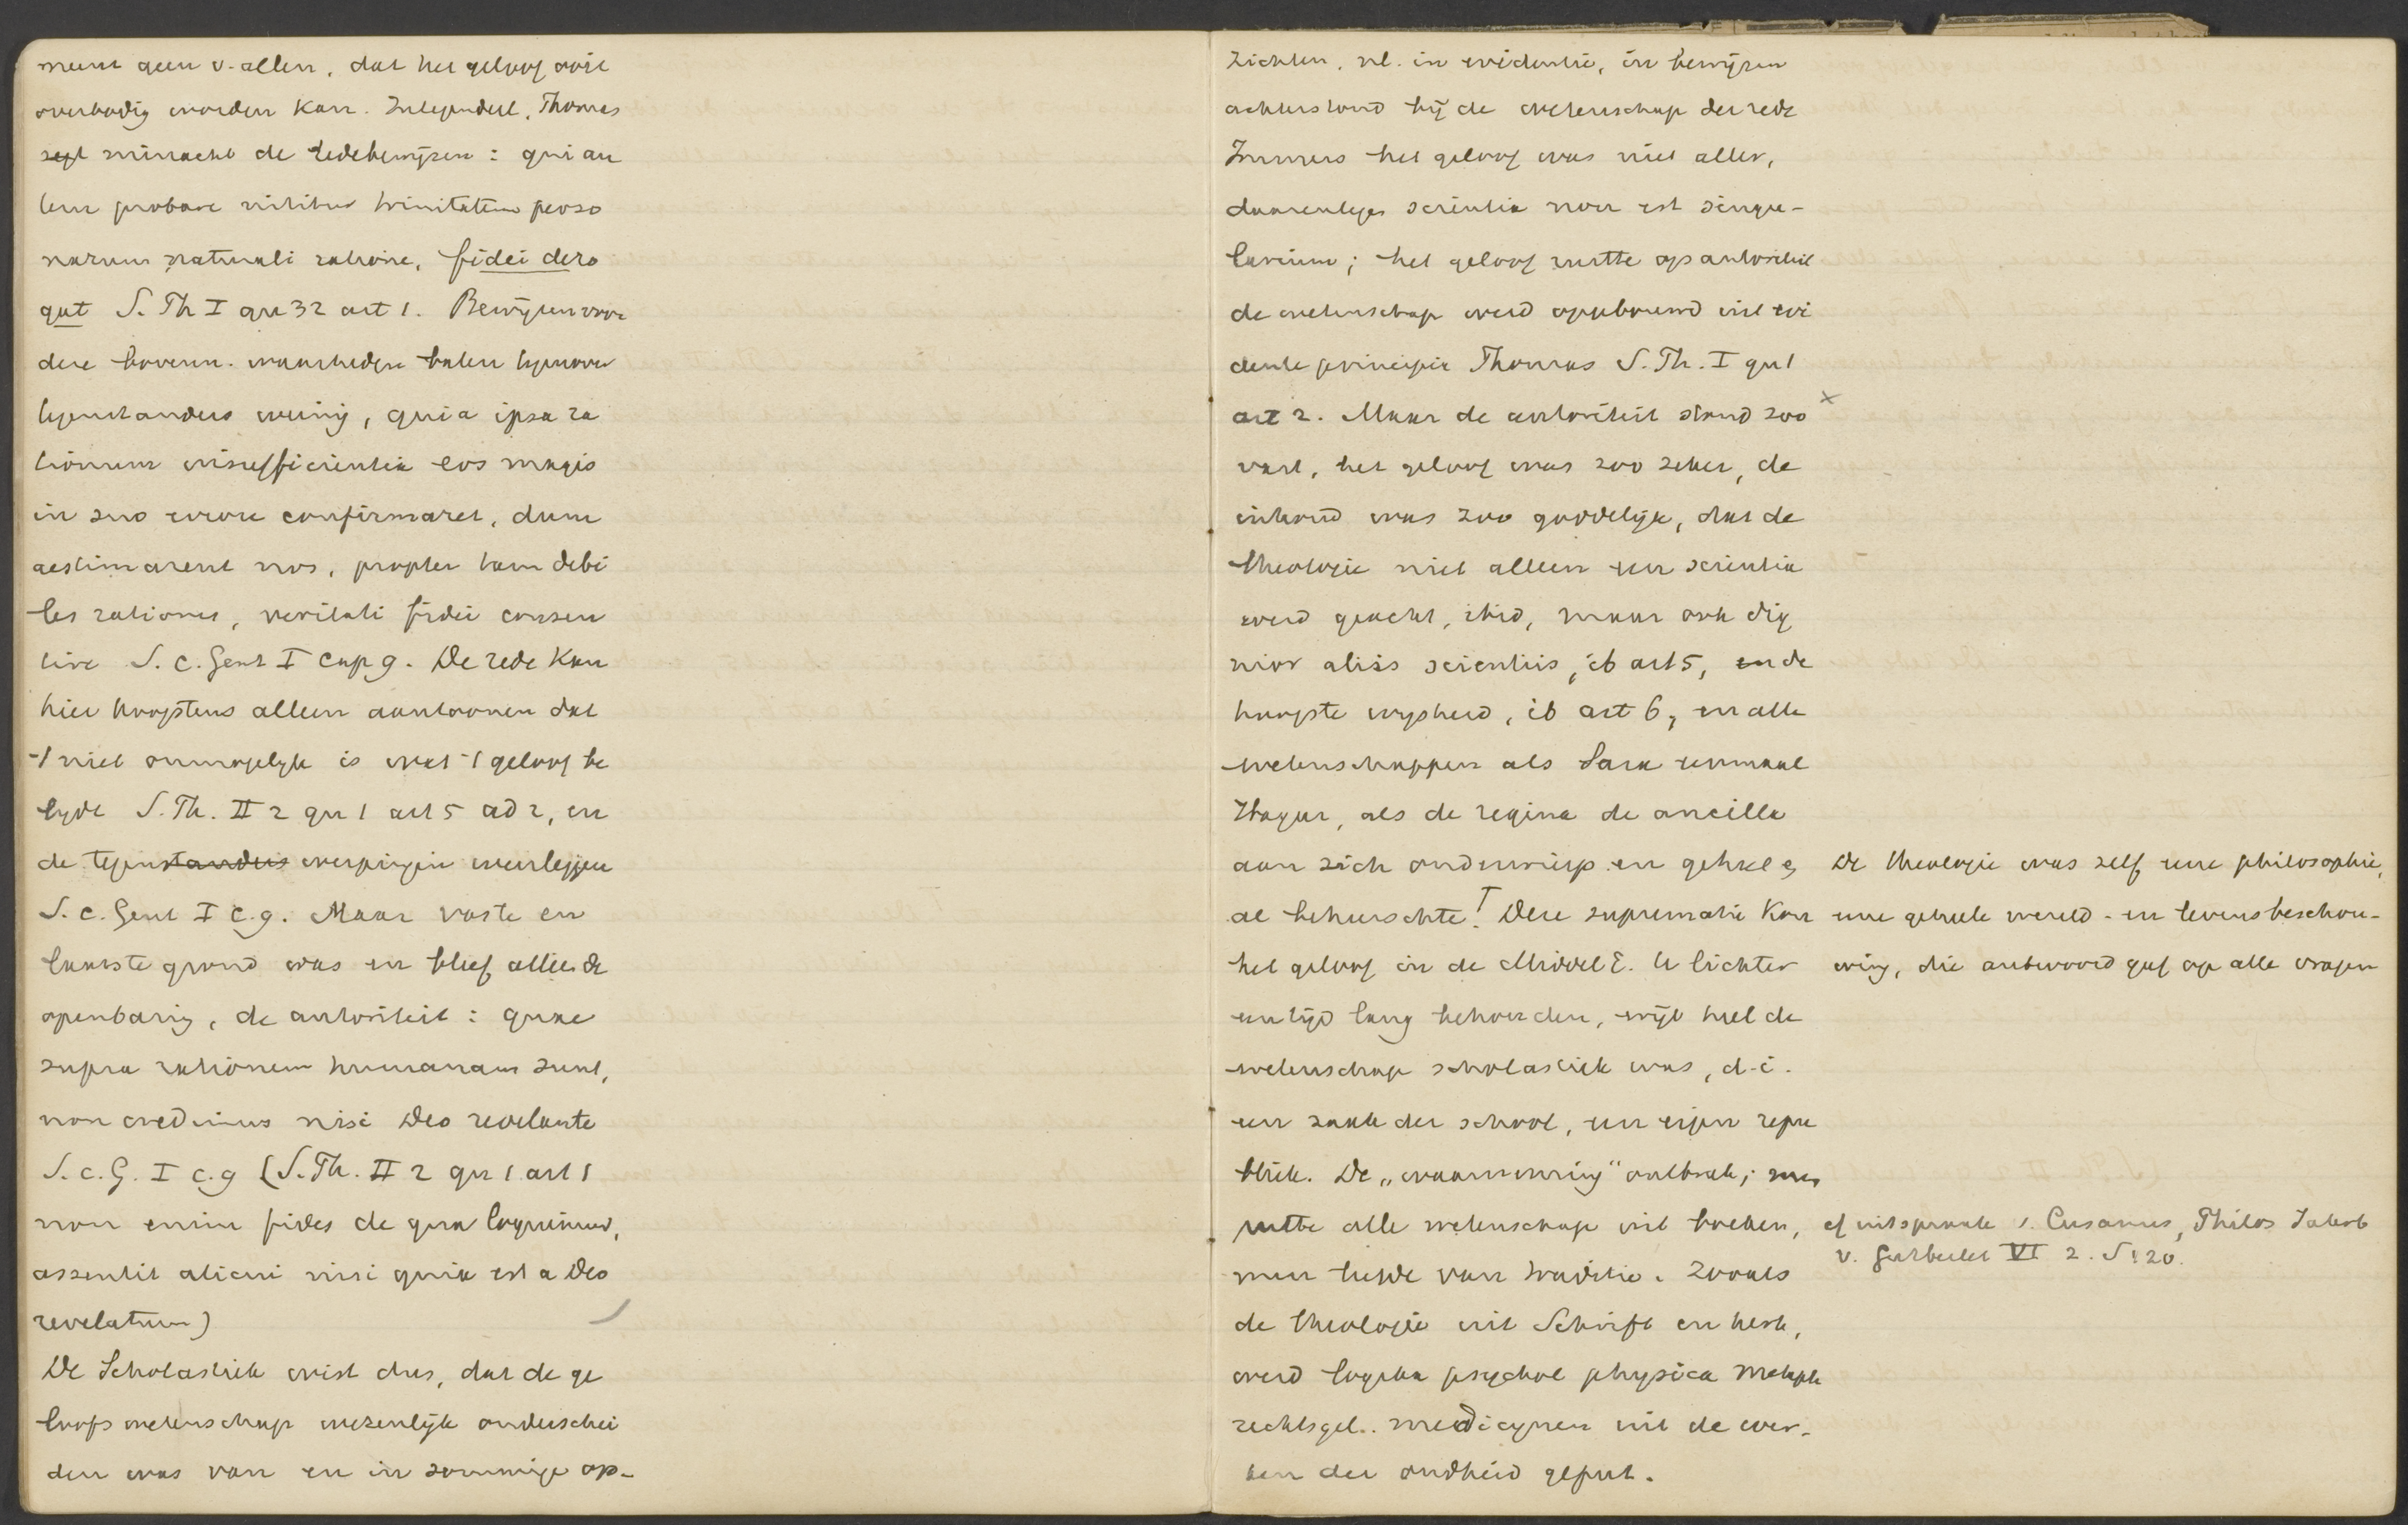 meent geen v. allen, dat het geloof ooit
overbodig worden kan. Integendeel, Thomas
zegt minacht de redebewijzen: qui au
tem probare nititur trinitatem perso
narum naturali ratione, fidei dero
gat S. Th I qu 32 art 1. Bewijzen voor
deze bovenn. waarheden baten tegenover
tegenstanders weinig, quia ipsa ra
tionum insufficientia eos magis
in suo errore confirmaret, dum
aestimarent nos, propter tam debi
les rationes, veritati fidei consen
tire S. c. Gent I cap 9. De rede kan
hier hoogstens alleen aantoonen dat
't niet onmogelijk is wat 't geloof be
lijdt S. Th. II 2 qu 1 art 5 ad 2, en
de tegenstanders werpingen weerleggen
S. c. Gent I c. 9. Maar vaste en
laatste grond was en bleef alleen de
openbaring, de autoriteit: quae
supra rationem humanam sunt,
non credimus nisi Deo revelante
S. c. G. I c. 9 (S. Th. II 2 qu 1 art 1
non enim fides de qua loquimur,
assentit alicui nisi quia est a Deo
revelatum)
De Scholastiek wist dus, dat de ge
loofswetenschap wezenlijk onderschei
den was van en in sommige op-
zichten, nl. in evidentie, in bewijzen
achterstond bij de wetenschap der rede
Immers het geloof was niet aller,
daarentegen scientia non est singu-
larium; het geloof rustte op autoriteit
de wetenschap werd opgebouwd uit evi
dente principia Thomas S. Th. I qu 1
art 2. Maar de autoriteit stond zoo x
vast, het geloof was zoo zeker, de
inhoud was zoo goddelijk, dat de
theologie niet alleen een scientia
werd geacht, ibid, maar ook dig
nior aliis scientiis, ib art 5, en de
hoogste wijsheid, ib art 6, en alle
wetenschappen als Sara eenmaal
Hagar, als de regina de ancilla
aan zich onderwierp en geheel
al beheerschte! T Deze suprematie kon
het geloof in de Middel E. te lichter
een tijd lang behouden, wijl heel de
wetenschap scholastiek was, d.i.
een zaak der school, een eigen repu
bliek. De „waarneming" ontbrak; men
putte alle wetenschap uit boeken,
men leefde van traditie. Zooals
de theologie uit Schrift en kerk,
werd logika psychol physica metaph
rechtsgel.. medicijnen uit de wer-
ken der oudheid geput.
De theologie was zelf eene philosophie,
eene geheele wereld- en levensbeschou-
wing, die antwoord gaf op alle vragen
cf uitspraak v. Cusanus, Philos Jahrb
v. Gutberlet VI 2. S 120.